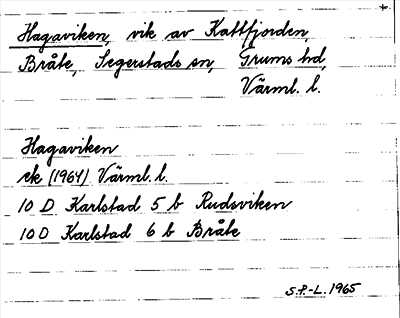 Hagaviken, vik av Kattfjorden,
Bråte, Segerstads sn, Grums hd,
Värml. l.
Hagaviken
ek (1964) Värml. l.
10 D Karlstad 5 b Rudsviken
10 D Karlstad 6 b Bråte
S.P.-L. 1965